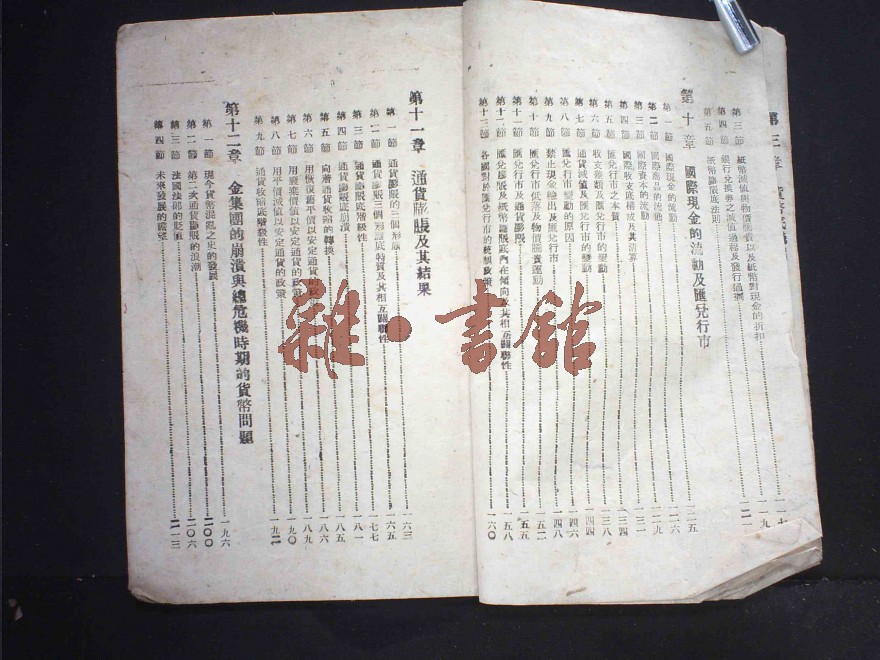 第三節 紙幣減值與物價騰貴以及紙幣對現金的折扣
第四節 銀行兌換券之減值過程及發行過剩
第五節 紙幣膨脹底法則
第十章 國際現金的流動及匯兌行市
第一節 國際現金的流動 一二五
第二節 國際商品的流通
第三節 國際資本的流動 一三一
第四節 國際收支底構成及其清算 一三四
第五節 匯兌行市之本質 一三八
第六節 收支差額及匯兌行市的變動
第七節 通貨減值及匯兌行市的變動 一四四
第八節 匯兌行市變動的原因 一四六
第九節 禁止現金輸出及匯兌行市 一四八
第十節 匯兌行市低落及物價騰貴運動 一五二
第十一節 匯兌行市及通貨膨脹 一五五
第十二節 匯兌膨脹及紙幣膨脹底內在傾向及其相互關聯性 一五八
第十三節 各國對於匯兌行市的統制政策 一六〇
第十一章 通貨膨脹及其結果 一六三
第一節 通貨膨脹的三個形態 一六五
第二節 通貨膨脹三個形態底特質及其相互關聯性 一七七
第三節 通貨膨脹底階級性 一八一
第四節 通貨膨脹底崩潰 一八五
第五節 向着通貨收縮的轉換 一八六
第六節 用恢復舊平價以安定通貨的政策 一八九
第七節 用嚴進價值以安定通貨的政策 一九〇
第八節 用平價減值以安定通貨的政策 一九二
第九節 通貨收縮底階級性
第十二章 金集團的崩潰與總危機時期的貨幣問題
第一節 現今貨幣混亂之史的發展 一九六
第二節 第二次通貨膨脹的浪潮 二〇〇
第三節 法國法郎的貶值 二〇六
第四節 未來發展的瞻望 二一三
雜·書館